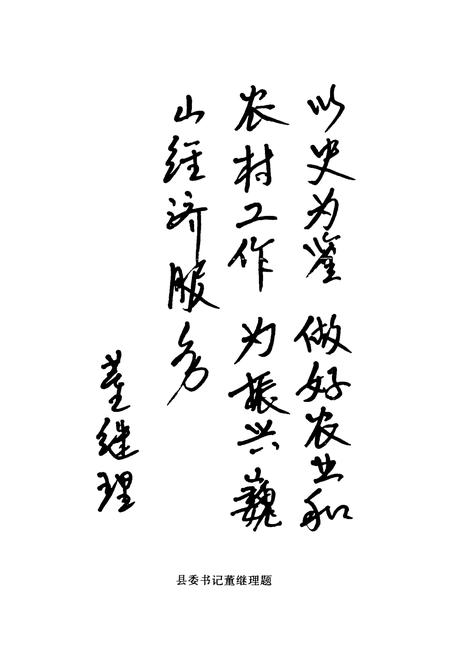 以史为鉴 做好农业和
农村工作 为振兴巍
山经济服务
董继理
县委书记董继理题